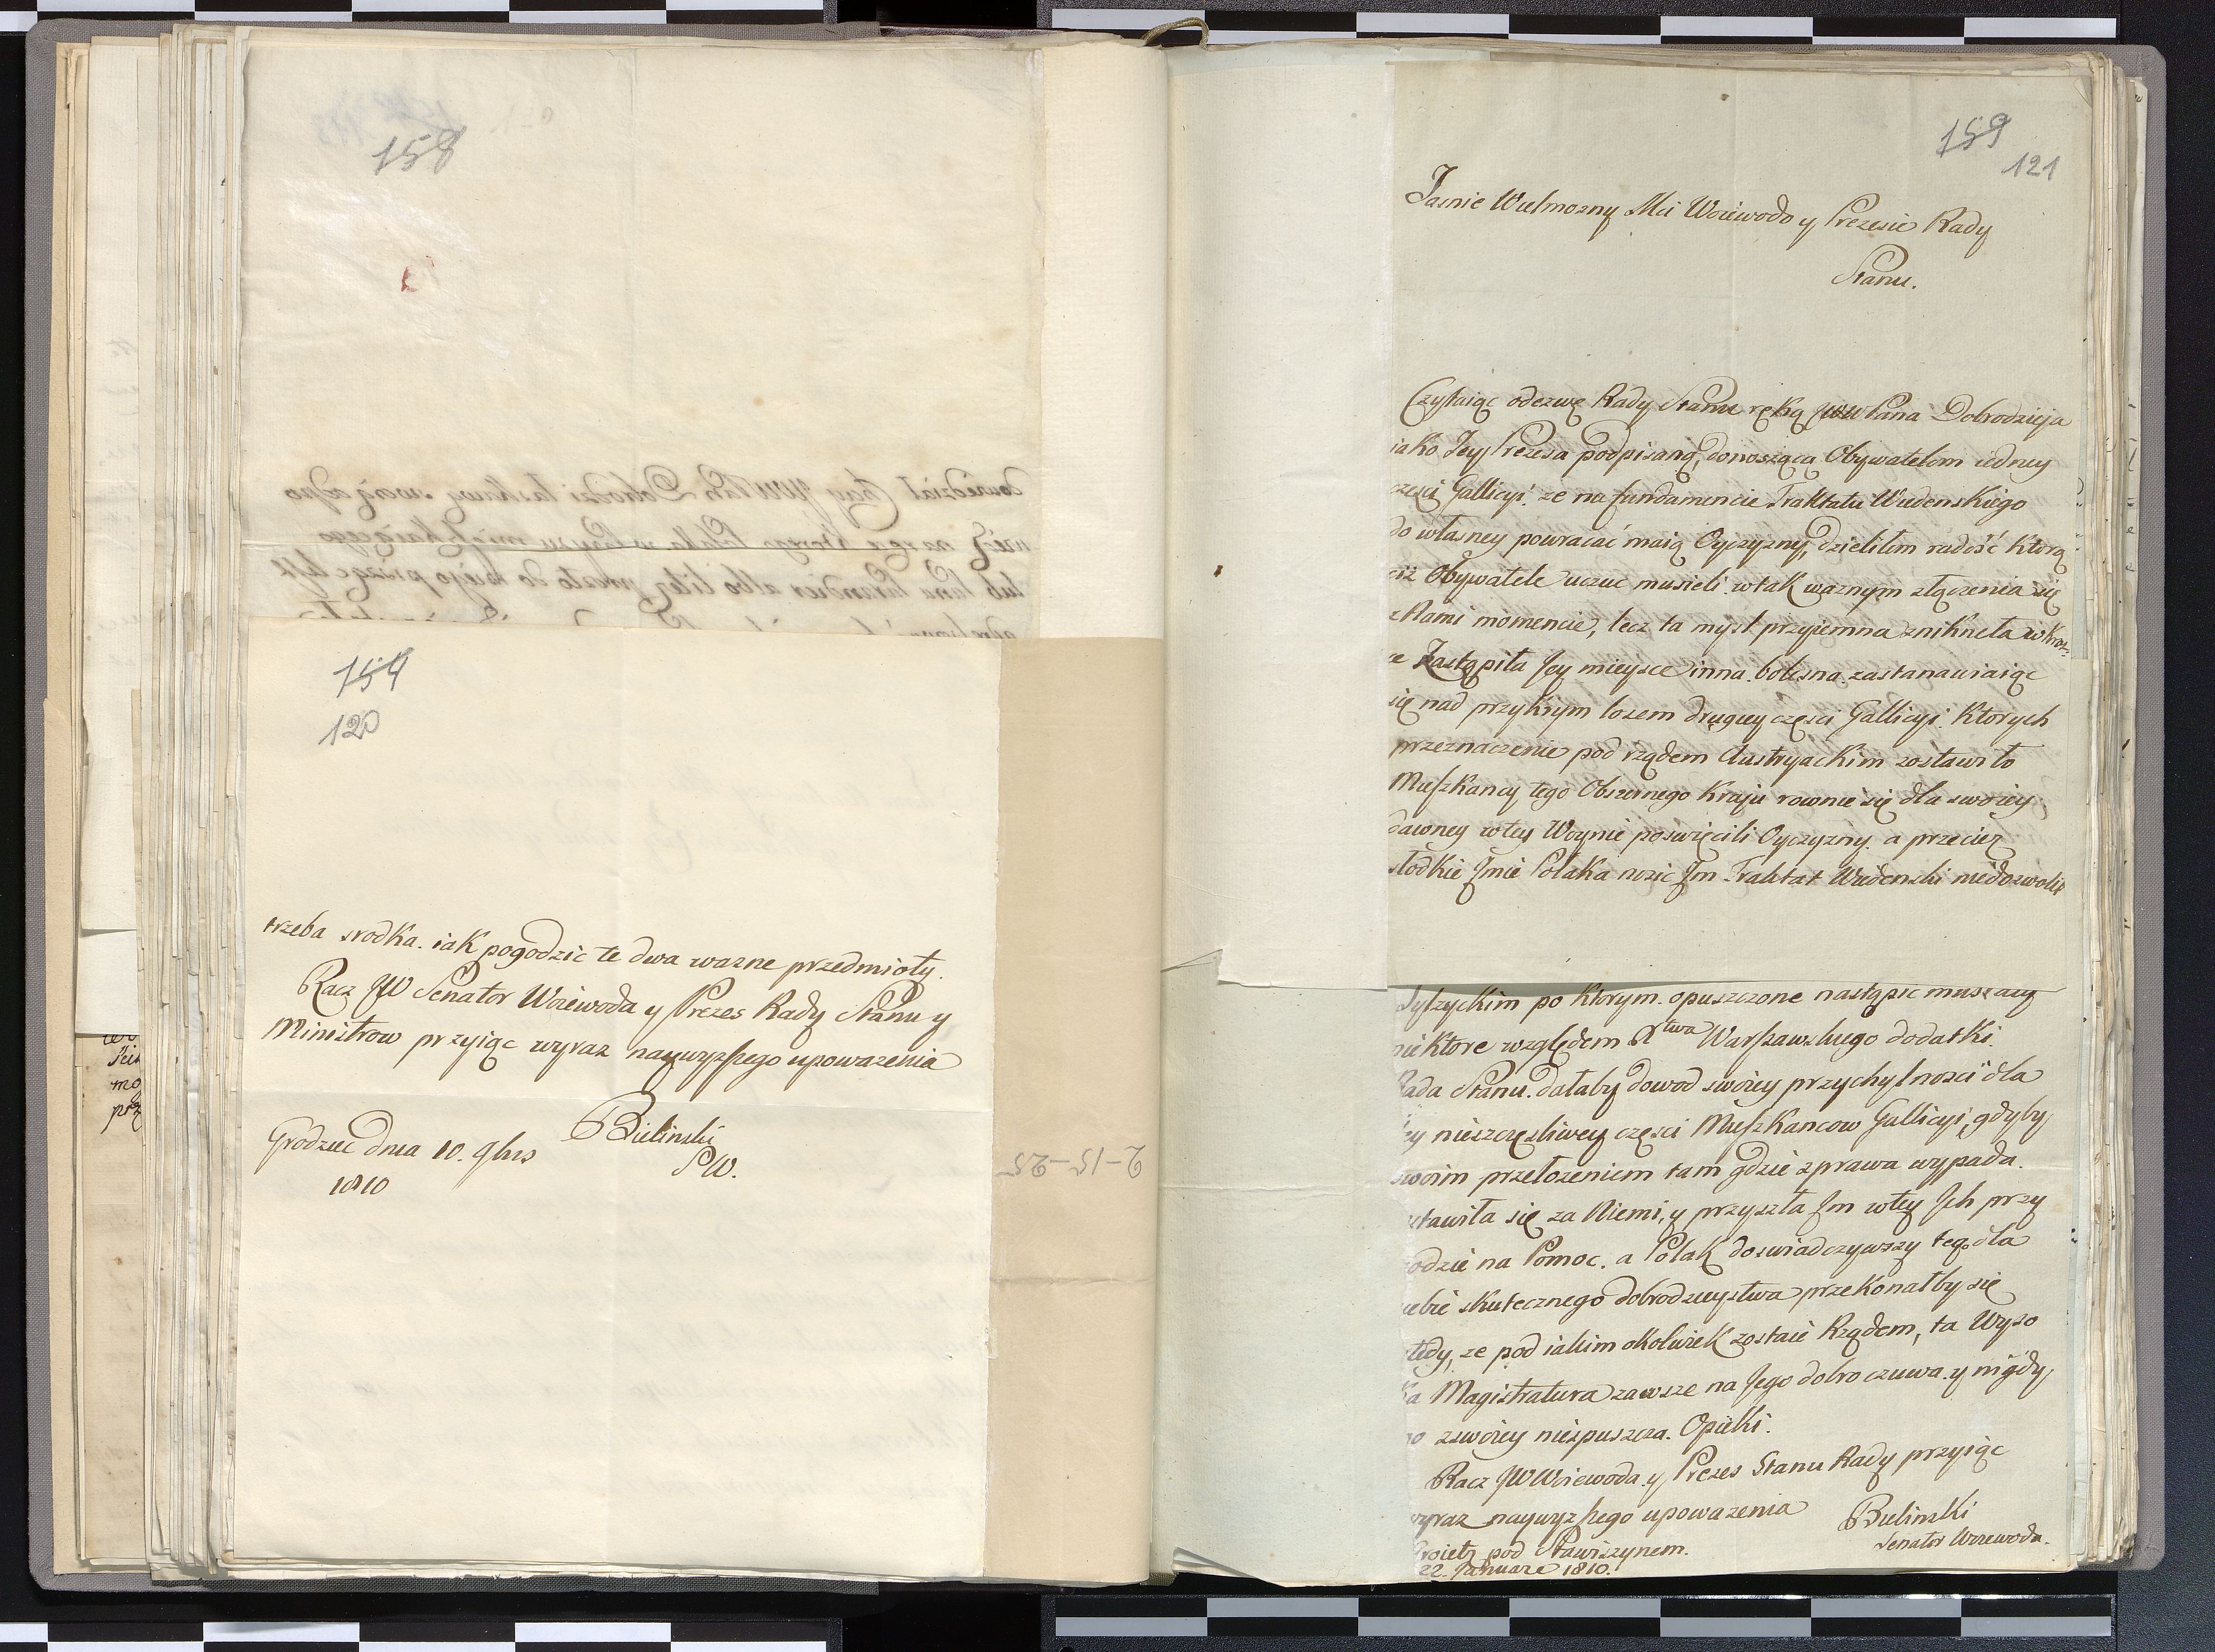 158
154
120
trzeba srodka. iak pogodzic te dwa wazne przedmioty.
Racz JW Senator Woiewoda y Prezes Rady Stanu y
Ministrow przyiąc wyraz naywyzszego upowazenia
Bielinski
SW.
Grodziec dnia 10. 9brs
1810
2-15-25
159
121
Jasnie Wielmozny Mci Woiewodo y Prezesie Rady
Stanu.
Czytaiąc odezwę Rady Stanu ręką JWW Pana Dobrodzieja
iako Jey Prezesa podpisaną, donoszącą Obywatelom iedney
częsci Gallicyi. ze na fundamencie Traktatu Wiedenskiego
do własney powracać maią Oyczyzny, dzieliłem radość ktorą
ciz Obywatele uczuc musieli. w tak waznym złączenia się
z Nami momencie, lecz ta mysl przyiemna znikneła w krot-
ce Zastąpiła Jey mieysce inna. bolesna. zastanawiaiąc
się nad przykrym losem drugiey częsci Gallicyi. Ktorych
przeznaczenie pod rządem Austryackim zostawiło
Mieszkancy tego Obszernego Kraju rownie się dla swoiey
dawney w tey Woynie poswięcili Oyczyzny. a przeciez
słodkie Jmie Polaka nosic Jm Traktat Wiedenski niedozwolił
Tylzyckim po ktorym. opuszczone nastąpic muszaią
niektore względem Xtwa Warszawskiego dodatki.
Rada Stanu. dałaby dowod swoiey przychylnosci dla
tey nieszczęsliwey częsci Mieszkancow Gallicyi, gdyby
swoim przełozeniem tam gdzie sprawa wypada.
wstawiła się za Niemi, y przyszła Jm w tey Jch przy
godzie na Pomoc. a Polak doswiadczywszy tego dla
siebie skutecznego dobrodzieystwa przekonałby się
wtedy, ze pod iakim okolwiek zostaie Rządem, ta Wyso
ka Magistratura zawsze na Jego dobro czuwa. y nigdy
go zswoiey niespuszcza. Opieki.
Racz JW Woiewoda. y Prezes Stanu Rady przyiąc
wyraz naywyzszego upowazenia
Bielinski
Senator Woiewoda.
pod Stawiszynem.
22. Januare 1810.